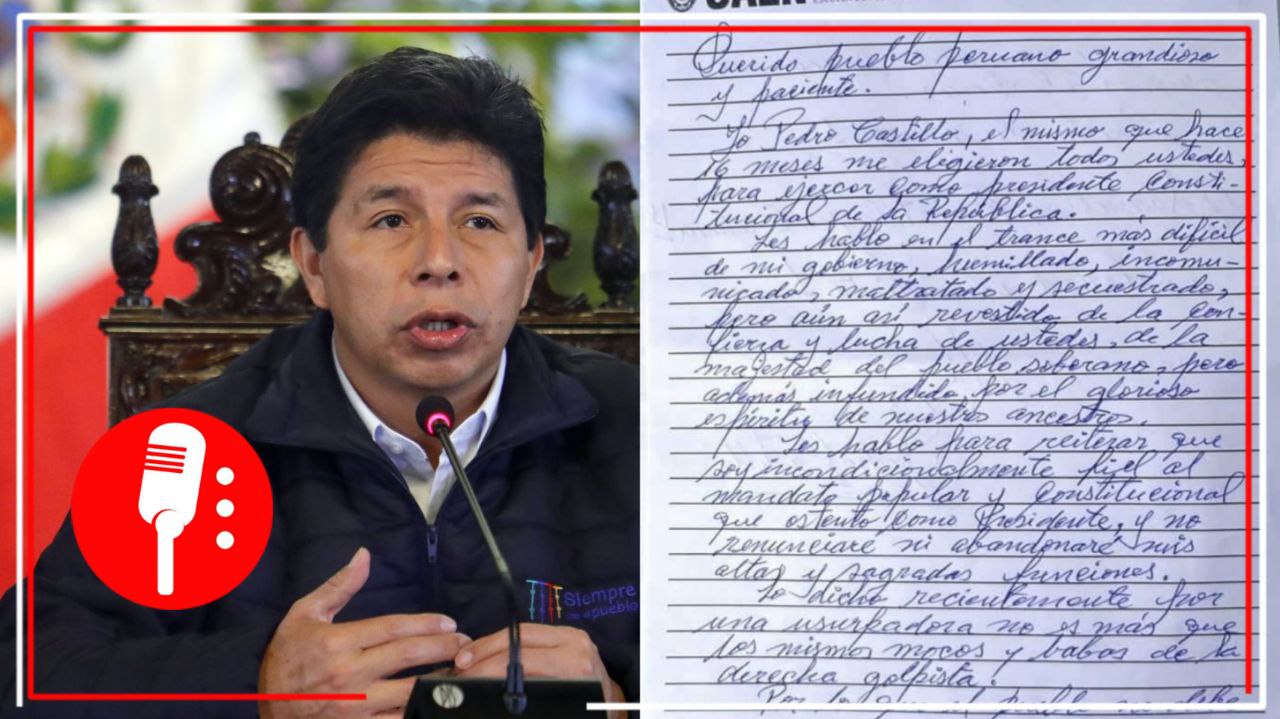 Siempre
con el pueblo
CAEN
Querido pueblo peruano grandioso
y paciente.
Yo Pedro Castillo, el mismo que hace
16 meses me eligieron todos ustedes,
para ejercer como presidente Consti-
tucional de la República.
Les hablo en el trance más difícil
de mi gobierno, humillado, incomu-
nicado, maltratado y secuestrado,
pero aún así revestido de la con-
fianza y lucha de ustedes, de la
majestad del pueblo soberano, pero
además infundido por el glorioso
espíritu de nuestros ancestros.
Les hablo para reiterar que
soy incondicionalmente fiel al
mandato popular y Constitucional
que ostento como Presidente, y no
renunciaré ni abandonaré mis
altas y sagradas funciones.
Lo dicho recientemente por
una usurpadora no es más que
los mismos mocos y babas de la
derecha golpista.
Por lo que el pueblo no debe